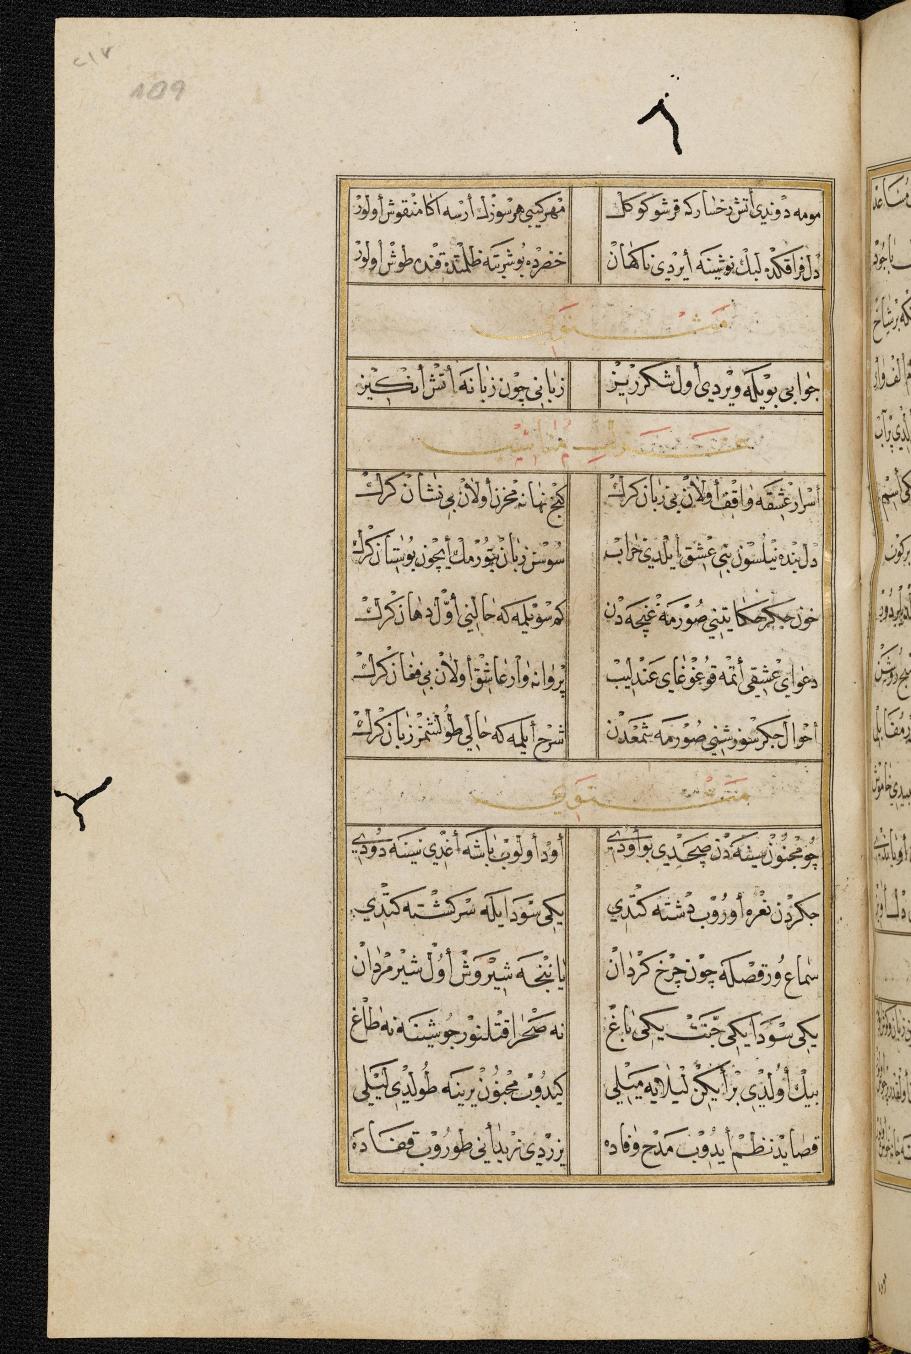 مومه دوندی آتش رخسارکه قرشو کوکل مهر کیبی هر سوزك ارسه اکا منقوش اولور
دل فراقکده لبك نوشینه ایردی ناکهان خضر در بو شربته ظلمتده قنده طوش اولور
مثنوی
جوابی بویله ویردی اول شکرریز زبانی چون زبانه آتش انکیز
غزل مناسب
اسرار عشقه واقف اولان بی زبان کرك کنج نهانه مخزن اولان بی نشان کرك
دل بنده نیلسون بنی عشق ایلدی خراب سوسن زبان بتورمك ایچون بوستان کرك
خون جکر حکایتنی صورمه غنچه دن کم سویلمه که حالنی اول دهان کرك
دعوای عشقی اتمه قو غوغای عندلیب پروانه وار عاشق اولان بی فغان کرك
احوال جکر سوزشنی صورمه شمعدن شرح ایلمه که حالی طولشمز زبان کرك
مثنوی
چو مجنون سینه دن چیقدی بو اودی اود اولوب باشه اغدی نیسنه دودی
جکردن نعره اوروب دشته کتدی یکی سودایله سرکشته کتدی
سماع اورقصکه چون چرخ کردان یاننجه شیروش اول شیر مردان
یکی سودا یکی جنت یکی باغ نه صحرا قتلنور جوشینه نه طاغ
بیك اولدی بر ایکن لیلایه میلی کیدوب مجنون یرینه طولدی لیلی
قصاید نظم ایدوب مدح و فاده یزردی نربدانی طوروب قفاده